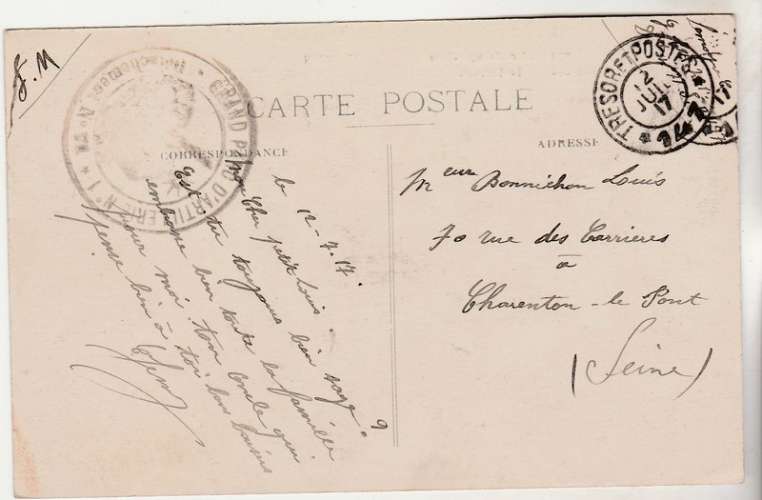 F.M
GRAND PARC D'ARTILLERIE N° 1
CARTE POSTALE
CORRESPONDANCE
ADRESSE
TRESOR ET POSTES
12
JUIL
17
* 147 *
le 12-7-17.
mon cher petit Louis.
Est tu toujours bien sage ?
embrasse bien toute la famille
pour moi ton oncle qui
pense bien à toi bons baisers
Mr Bonnichon Louis
70 rue des Carrieres
a
Charenton-le Pont
(Seine)